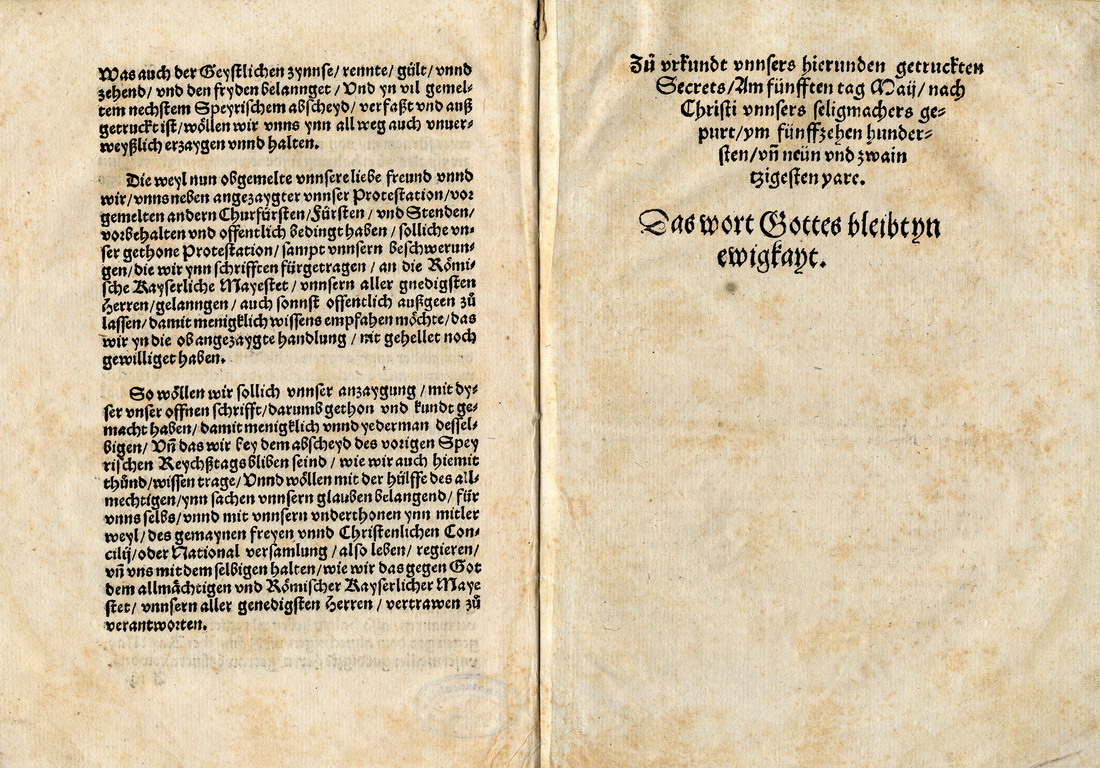 Was auch der Geystlichen zynnse/ rennte/ gült/ vnnd
zehend/ vnd den fryden belannget/ Vnd yn vil gemel⸗
tem nechstem Speyrischem abscheyd/ verfaßt vnd auß
getruckt ist/ wöllen wir vnns ynn all weg auch vnuer⸗
weyßlich erzaygen vnnd halten.
Die weyl nun obgemelte vnnsere liebe freund vnnd
wir/ vnns neben angezaygter vnnser Protestation/ vor
gemelten andern Churfürsten/ Fürsten/ vnd Stenden/
vorbehalten vnd offentlich bedingt haben/ solliche vn⸗
ser gethone Protestation/ sampt vnnsern beschwerun⸗
gen/ die wir ynn schrifften fürgetragen/ an die Römi⸗
sche Kayserliche Mayestet/ vnnsern aller gnedigsten
Herren/ gelanngen/ auch sonnst offentlich außgeen zů
lassen/ damit menigklich wissens empfahen möchte/ das
wir yn die ob angezaygte handlung/ nit gehellet noch
gewilliget haben.
So wöllen wir sollich vnnser anzaygung/ mit dy⸗
ser vnser offnen schrifft/ darumb gethon vnd kundt ge⸗
macht haben/ damit menigklich vnnd yederman dessel⸗
bigen/ Vñ das wir bey dem abscheyd des vorigen Spey
rischen Reychßtags bliben seind/ wie wir auch hiemit
thünd/ wissen trage/ Vnnd wöllen mit der hülffe des all⸗
mechtigen/ ynn sachen vnnsern glauben belangend/ für
vnns selbs/ vnnd mit vnnsern vnderthonen ynn mitler
weyl/ des gemaynen freyen vnnd Christenlichen Con⸗
cilij/ oder National versamlung/ also leben/ regieren/
vñ vns mit dem selbigen halten/ wie wir das gegen Got
dem allmächtigen vnd Römischer Kayserlicher Maye
stet/ vnnsern aller genedigsten Herren/ vertrawen zů
verantworten.
Zů vrkundt vnnsers hierunden getruckten
Secrets/ Am fünfften tag Maij/ nach
Christi vnnsers seligmachers ge⸗
purt/ ym fünffzehen hunder⸗
sten/ vñ neün vnd zwain
tzigesten yare.
Das wort Gottes bleibt yn
ewigkayt.